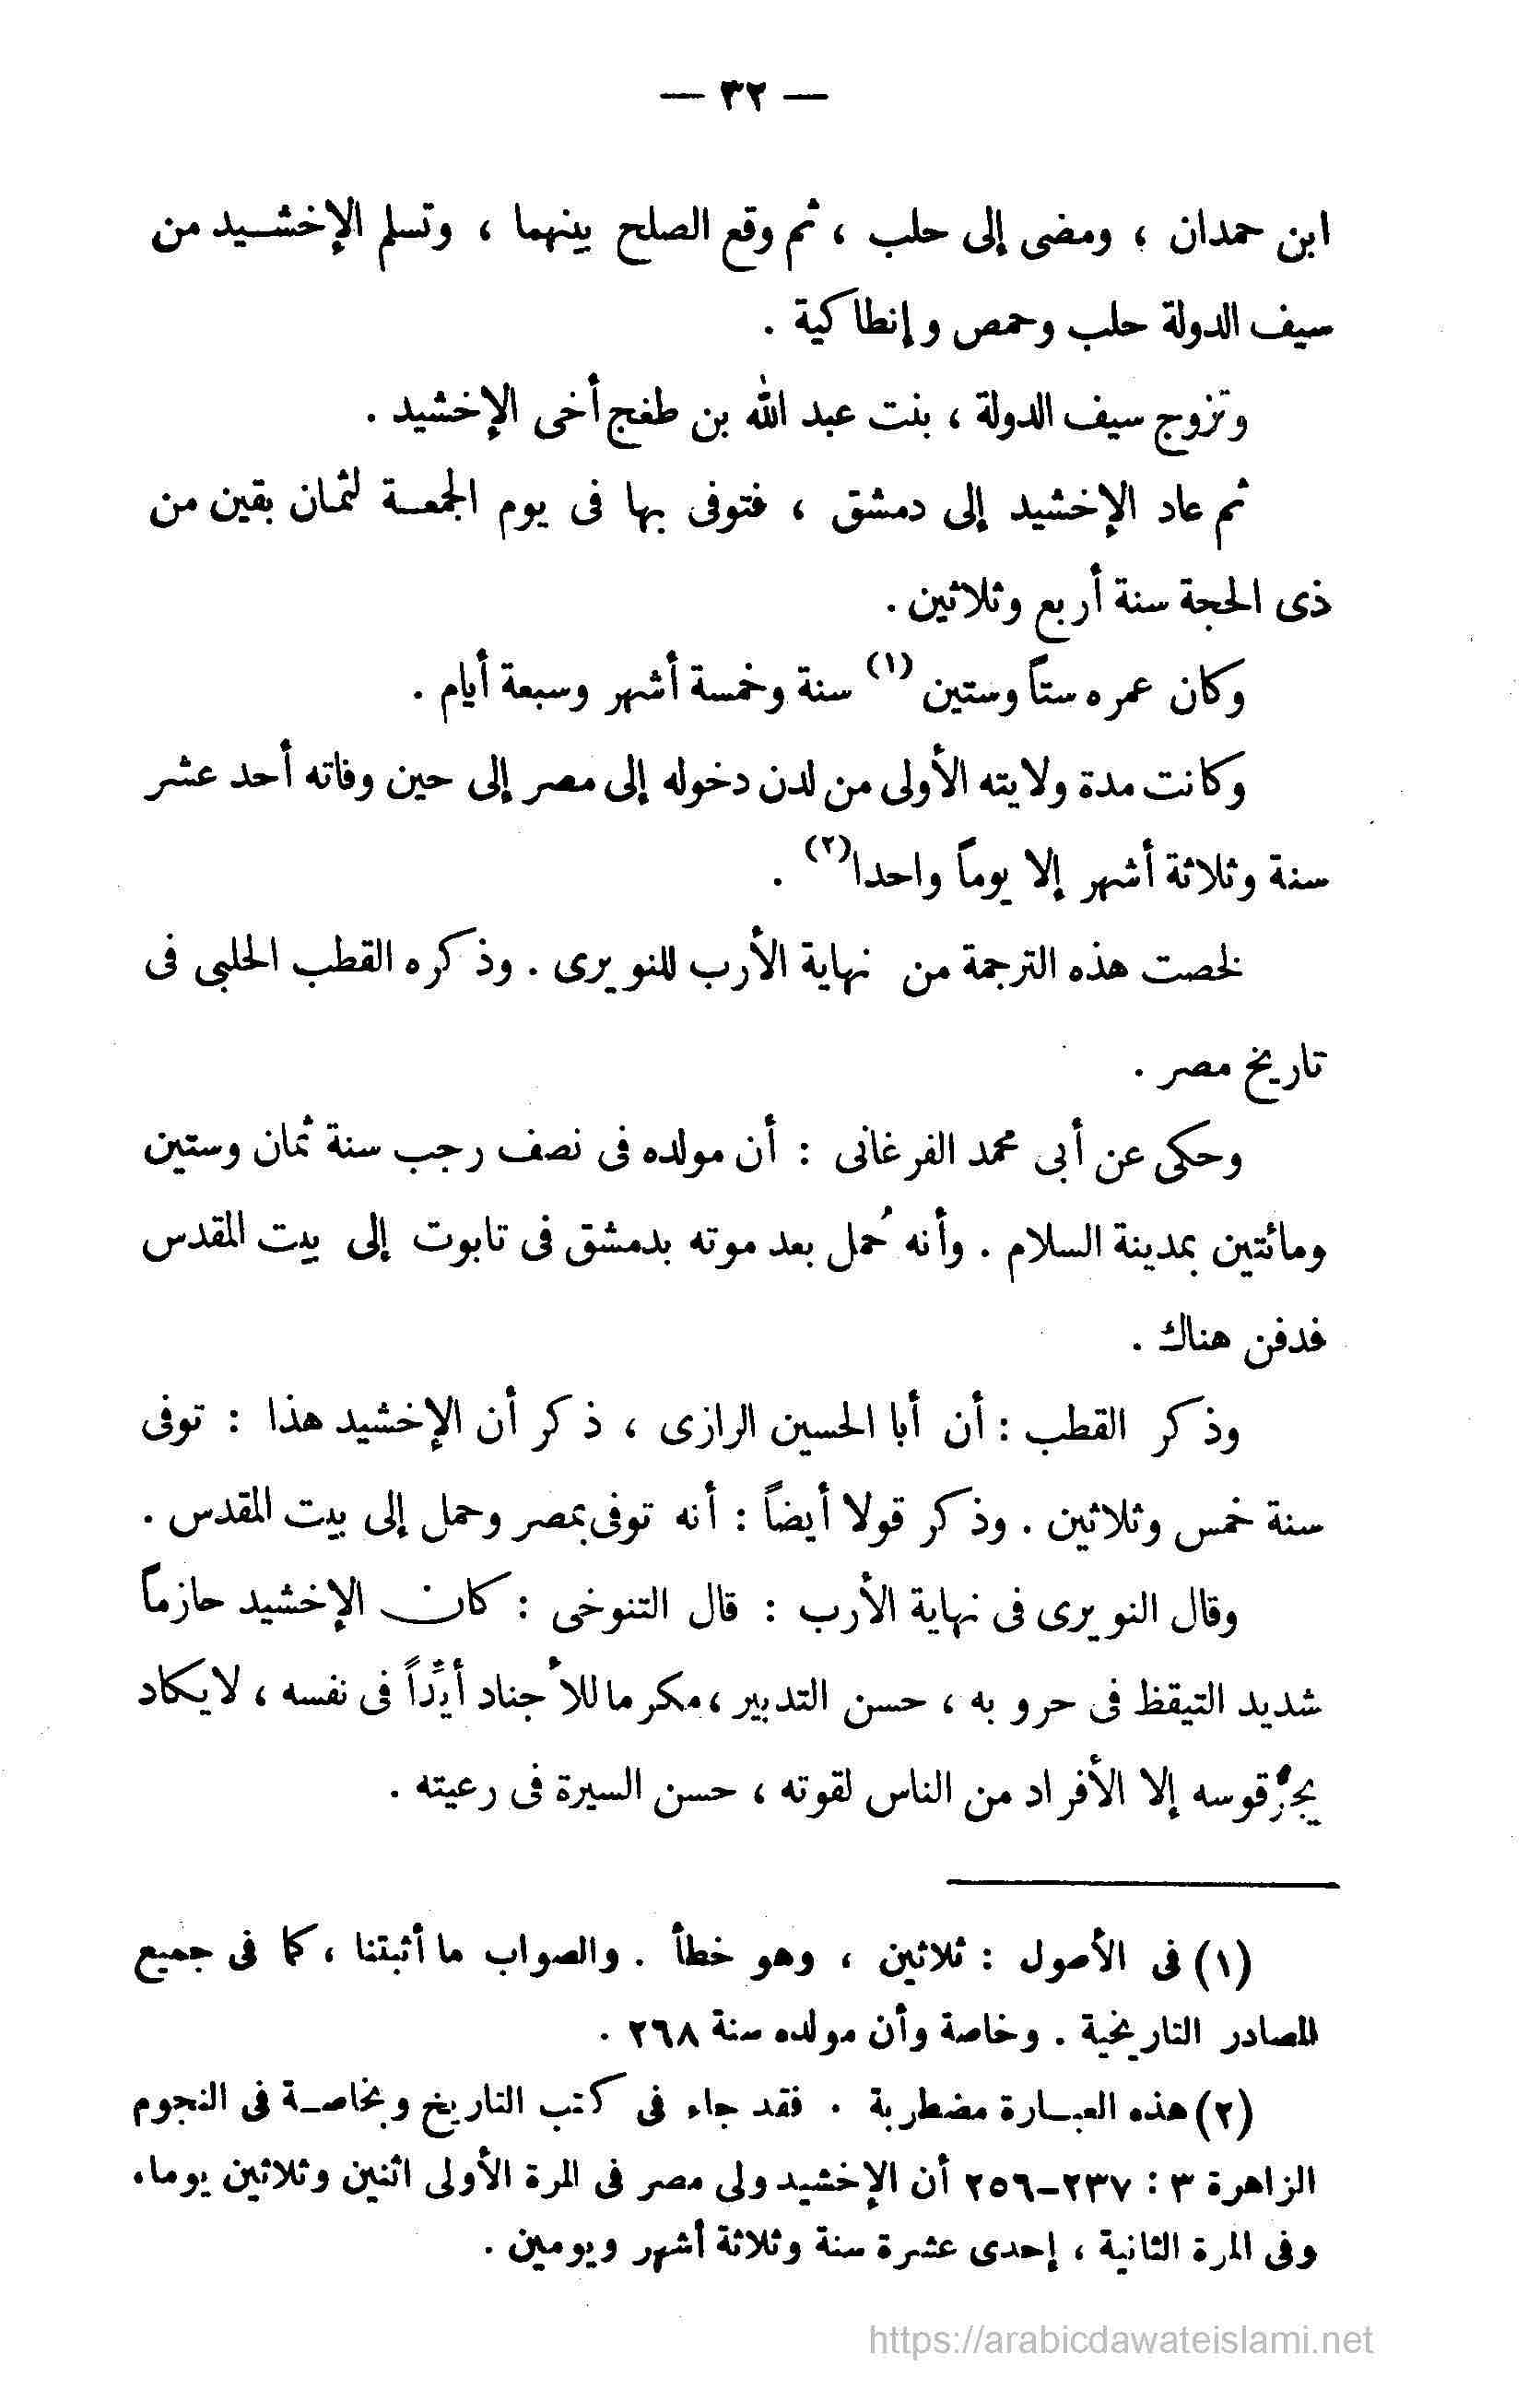 — ٣٢ —
ابن حمدان ، ومضى إلى حلب ، ثم وقع الصلح بينهما ، وتسلم الإخشيد من
سيف الدولة حلب وحمص وإنطاكية .
وتزوج سيف الدولة ، بنت عبد الله بن طغج أخى الإخشيد .
ثم عاد الإخشيد إلى دمشق ، فتوفى بها فى يوم الجمعة لثمان بقين من
ذى الحجة سنة أربع وثلاثين .
وكان عمره ستاً وستين (١) سنة وخمسة أشهر وسبعة أيام .
وكانت مدة ولايته الأولى من لدن دخوله إلى مصر إلى حين وفاته أحد عشر
سنة وثلاثة أشهر إلا يوماً واحدا (٢) .
لخصت هذه الترجمة من نهاية الأرب للنويرى . وذكره القطب الحلبى فى
تاريخ مصر .
وحكى عن أبى محمد الفرغانى : أن مولده فى نصف رجب سنة ثمان وستين
ومائتين بمدينة السلام . وأنه حُمل بعد موته بدمشق فى تابوت إلى بيت المقدس
فدفن هناك .
وذكر القطب : أن أبا الحسين الرازى ، ذكر أن الإخشيد هذا : توفى
سنة خمس وثلاثين . وذكر قولا أيضاً : أنه توفى بمصر وحمل إلى بيت المقدس .
وقال النويرى فى نهاية الأرب : قال التنوخى : كان الإخشيد حازماً
شديد التيقظ فى حروبه ، حسن التدبير ، مكرما للأجناد أيِّداً فى نفسه ، لايكاد
يجرّ قوسه إلا الأفراد من الناس لقوته ، حسن السيرة فى رعيته .
(١) فى الأصول : ثلاثين ، وهو خطأ . والصواب ما أثبتنا ، كما فى جميع
المصادر التاريخية . وخاصة وأن مولده سنة ٢٦٨ .
(٢) هذه العبارة مضطربة . فقد جاء فى كتب التاريخ وبخاصة فى النجوم
الزاهرة ٣ : ٢٣٧–٢٥٦ أن الإخشيد ولى مصر فى المرة الأولى اثنين وثلاثين يوما،
وفى المرة الثانية ، إحدى عشرة سنة وثلاثة أشهر ويومين .
https://arabicdawateislami.net